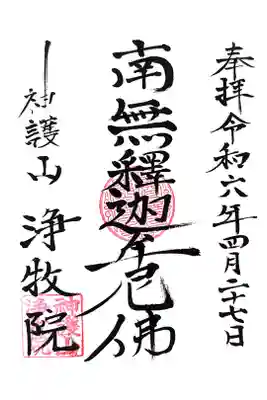 奉拝令和六年四月二十七日
南無釋迦牟尼佛
神護山
浄牧院